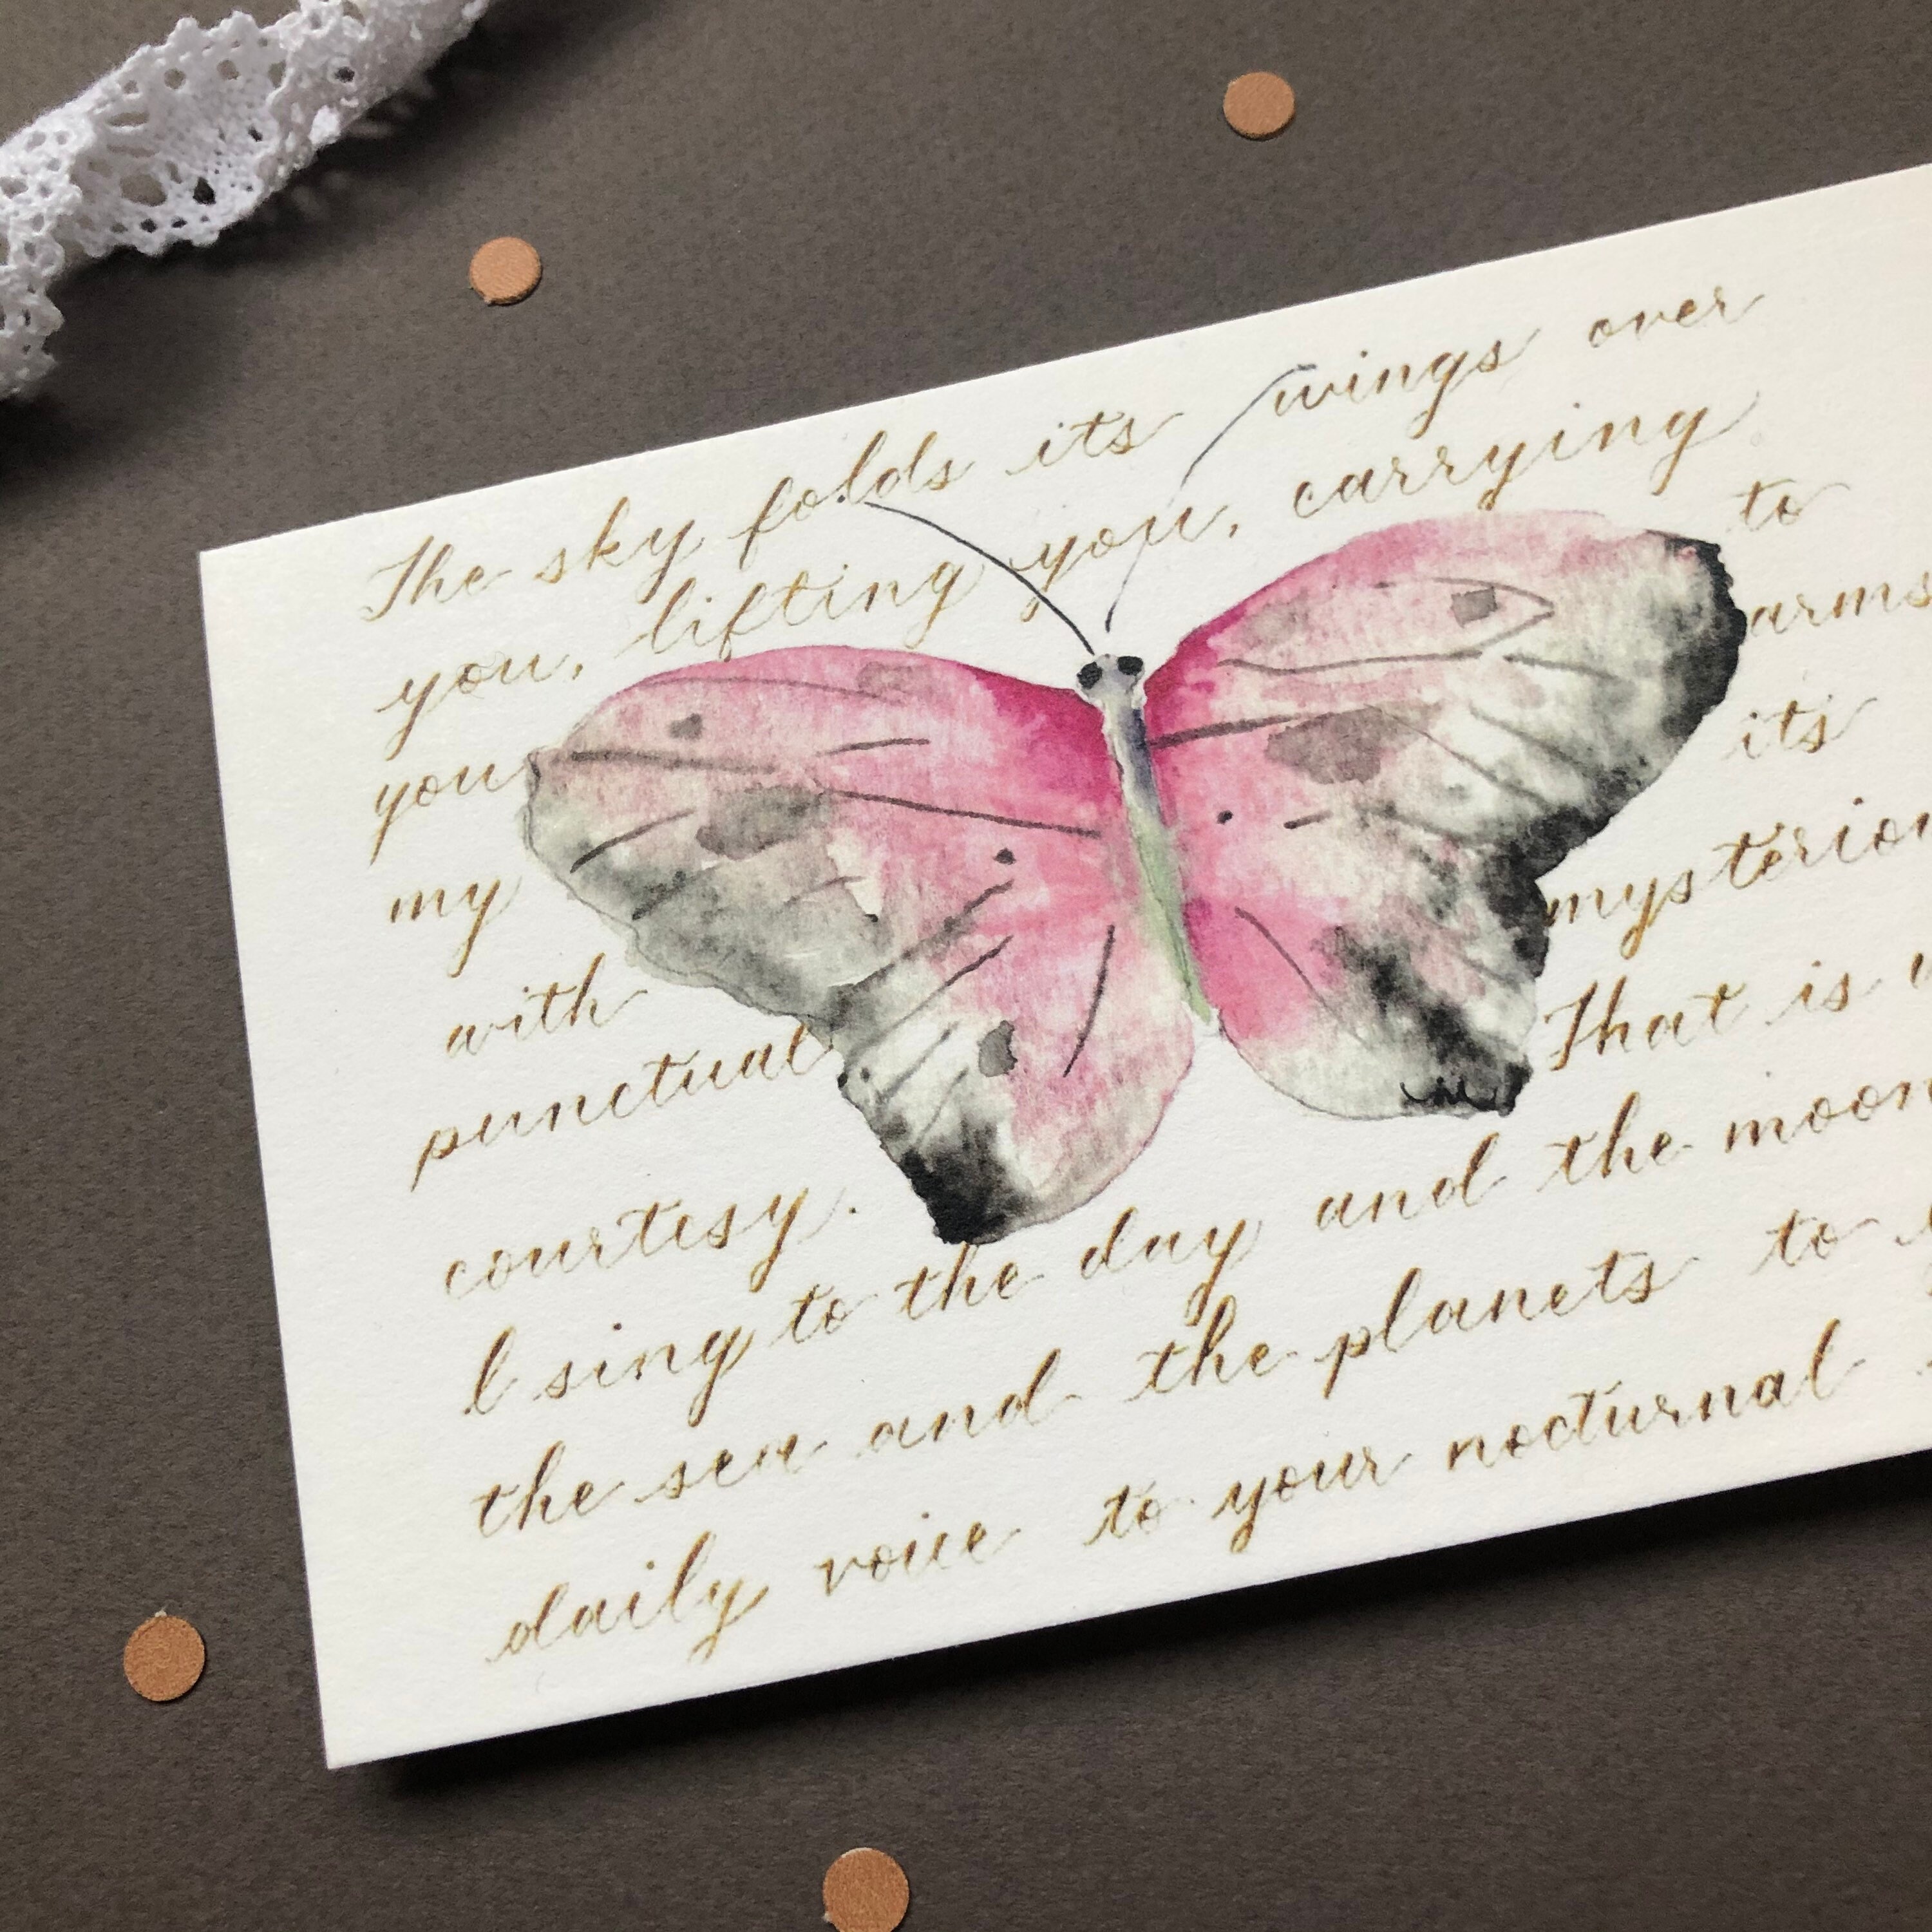 The sky folds its wings over
you, lifting you, carrying
you to
my arms
with its
punctual mysteriou
courtesy. That is
I sing to the day and the moon
the sea and the planets to
daily voice to your nocturnal